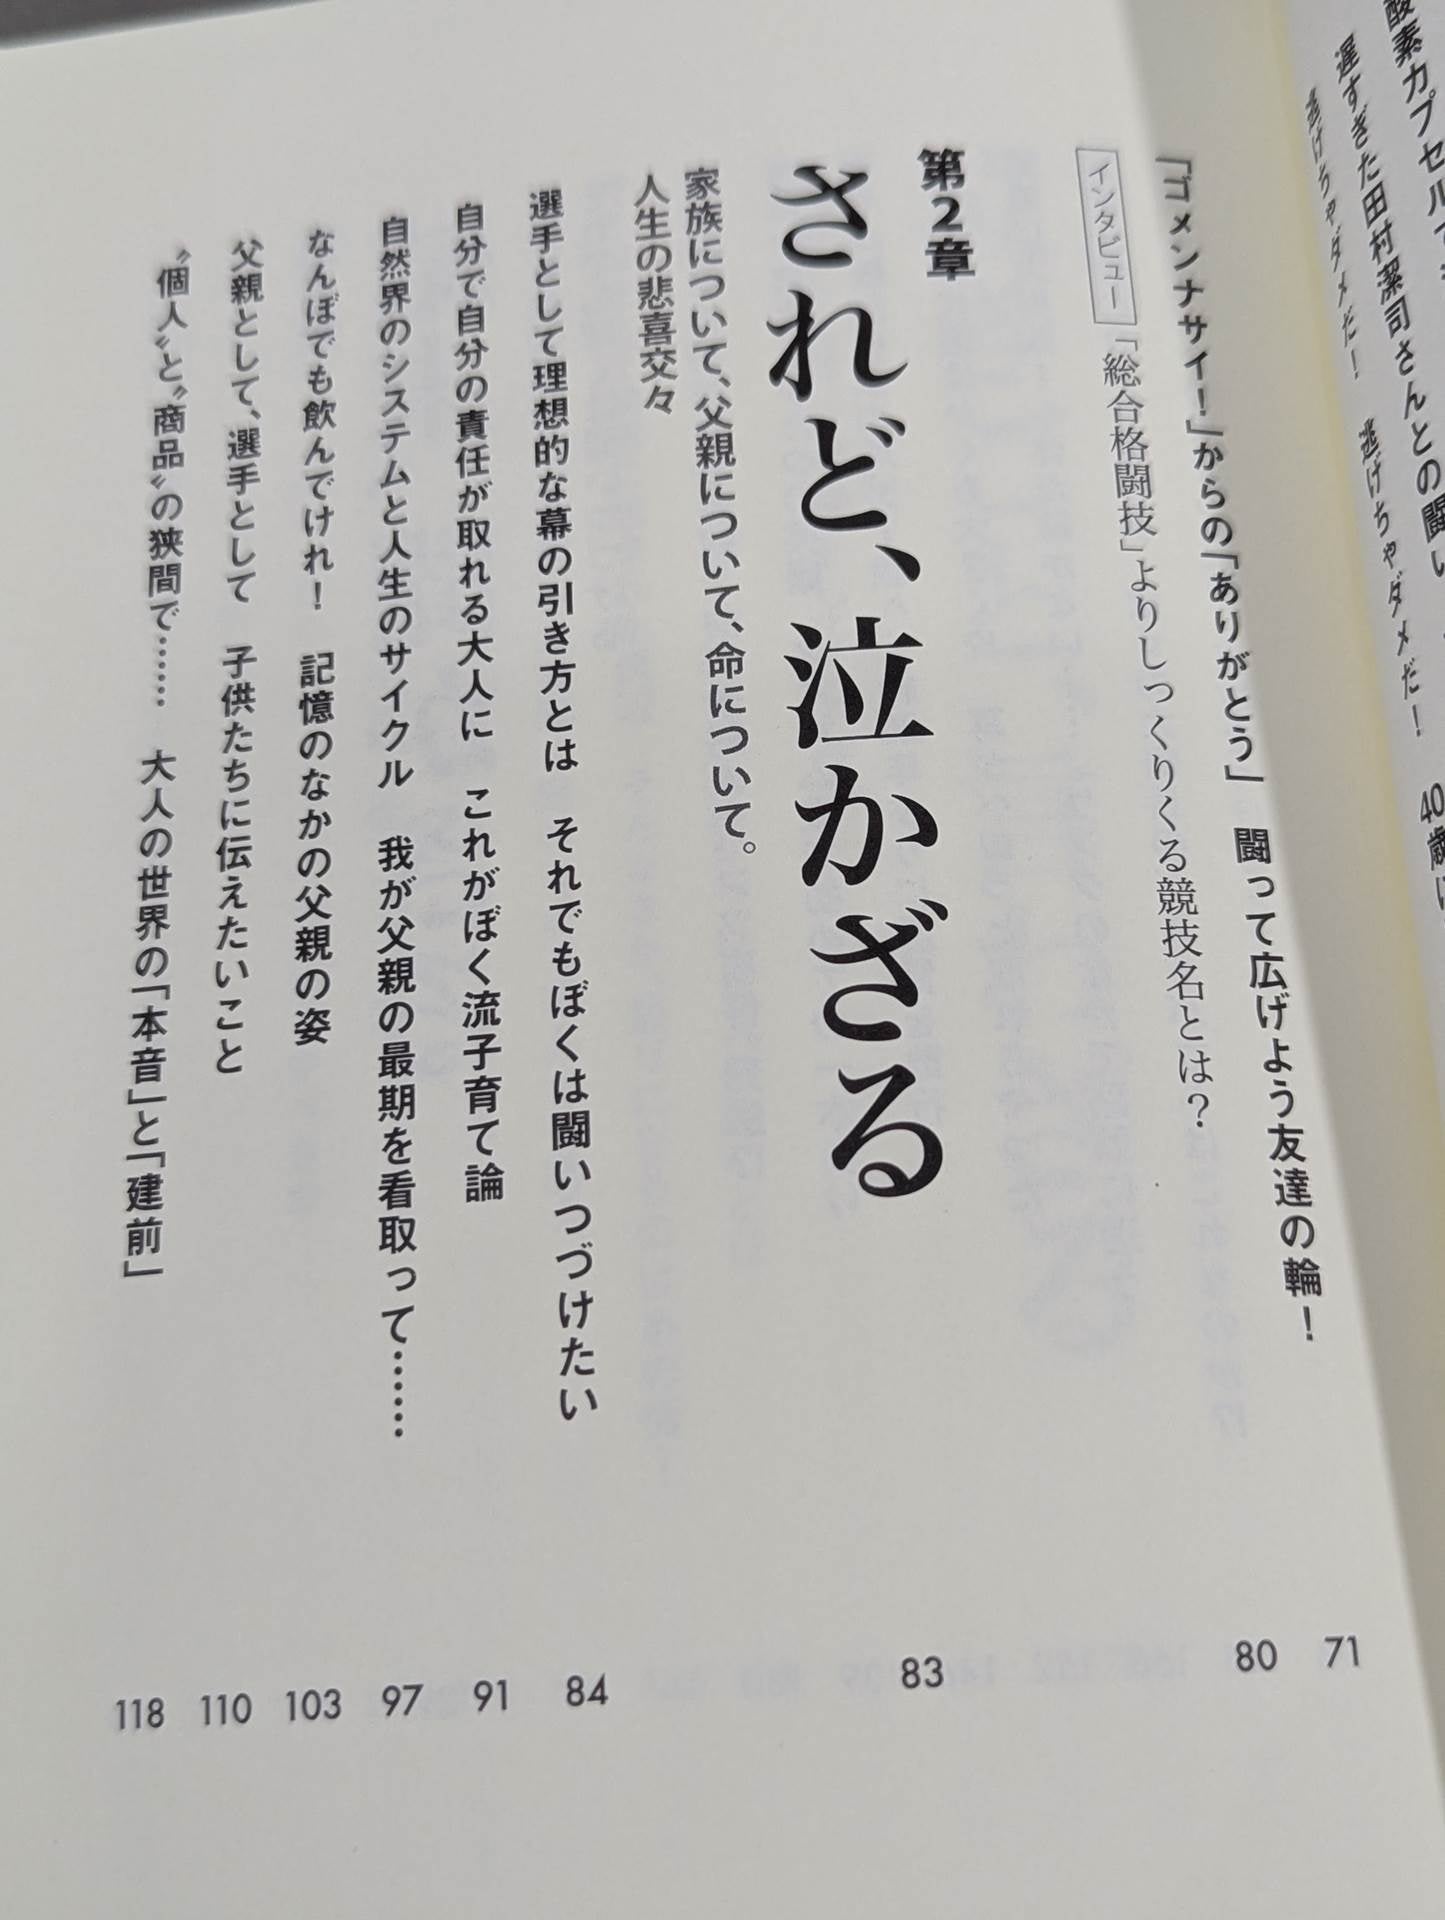 酸素カプセルで
遅すぎた田村潔司さんとの闘い
40歳に
逃げちゃダメだ! 逃げちゃダメだ!
「ゴメンナサイ!」からの「ありがとう」 闘って広げよう友達の輪!
71
インタビュー 「総合格闘技」よりしっくりくる競技名とは?
80
第2章
されど、泣かざる
83
家族について、父親について、命について。
人生の悲喜交々
選手として理想的な幕の引き方とは それでもぼくは闘いつづけたい
84
自分で自分の責任が取れる大人に これがぼく流子育て論
91
自然界のシステムと人生のサイクル 我が父親の最期を看取って……
97
なんぼでも飲んでけれ! 記憶のなかの父親の姿
103
父親として、選手として 子供たちに伝えたいこと
110
〝個人〟と〝商品〟の狭間で…… 大人の世界の「本音」と「建前」
118